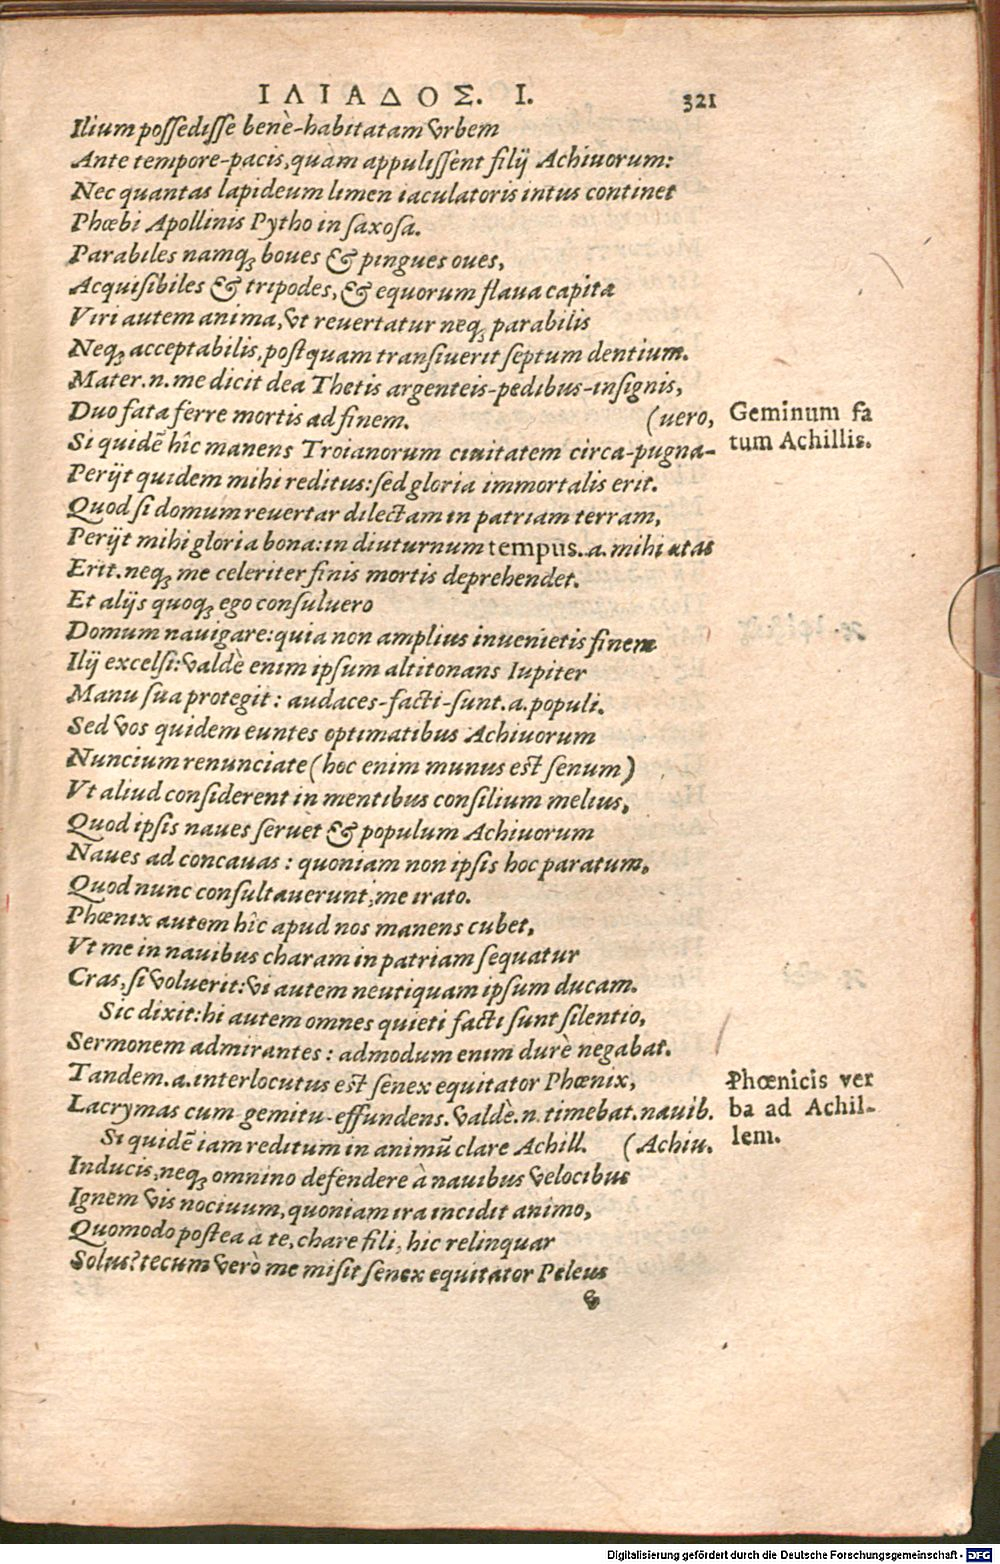 ΙΛΙΑΔΟΣ. Ι. 321
Ilium possedisse benè-habitatam vrbem
Ante tempore-pacis, quàm appulissent filij Achiuorum:
Nec quantas lapideum limen iaculatoris intus continet
Phœbi Apollinis Pytho in saxosa.
Parabiles namq; boues & pingues oues,
Acquisibiles & tripodes, & equorum flaua capita
Viri autem anima, vt reuertatur neq; parabilis
Neq; acceptabilis, postquam transiuerit septum dentium.
Mater .n. me dicit dea Thetis argenteis-pedibus-insignis,
Duo fata ferre mortis ad finem. (uero,
Geminum fa
Si quidẽ hîc manens Troianorum ciuitatem circa-pugna-
tum Achillis.
Perijt quidem mihi reditus: sed gloria immortalis erit.
Quod si domum reuertar dilectam in patriam terram,
Perijt mihi gloria bona: in diuturnum tempus .a. mihi ætas
Erit. neq; me celeriter finis mortis deprehendet.
Et alijs quoq; ego consuluero
Domum nauigare: quia non amplius inuenietis finem
Ilij excelsi: valdè enim ipsum altitonans Iupiter
Manu sua protegit: audaces-facti-sunt .a. populi.
Sed vos quidem euntes optimatibus Achiuorum
Nuncium renunciate (hoc enim munus est senum)
Vt aliud considerent in mentibus consilium melius,
Quod ipsis naues seruet & populum Achiuorum
Naues ad concauas: quoniam non ipsis hoc paratum,
Quod nunc consultauerunt, me irato.
Phœnix autem hîc apud nos manens cubet,
Vt me in nauibus charam in patriam sequatur
Cras, si voluerit: vi autem neutiquam ipsum ducam.
Sic dixit: hi autem omnes quieti facti sunt silentio,
Sermonem admirantes: admodum enim durè negabat.
Tandem .a. interlocutus est senex equitator Phœnix,
Phœnicis ver
Lacrymas cum gemitu-effundens. valdè .n. timebat. nauib.
ba ad Achil-
Si quidẽ iam reditum in animũ clare Achill. (Achiu.
lem.
Inducis, neq; omnino defendere à nauibus velocibus
Ignem vis nociuum, quoniam ira incidit animo,
Quomodo postea à te, chare fili, hic relinquar
Solus? tecum verò me misit senex equitator Peleus
&
Digitalisierung gefördert durch die Deutsche Forschungsgemeinschaft - DFG